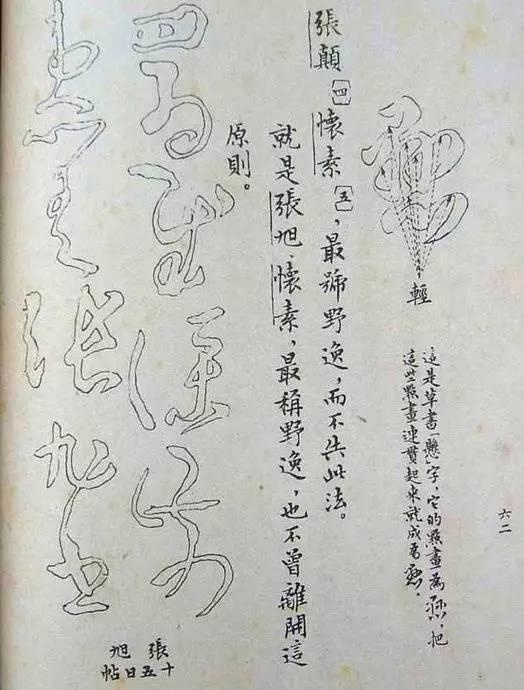 六二
輕
這是草書「懸」字，它的點畫為
，把
這些點畫連貫起來就成為
。
張顛〔四〕懷素〔五〕，最號野逸，而不失此法。
就是張旭、懷素，最稱野逸，也不曾離開這
原則。
張旭
十五日帖